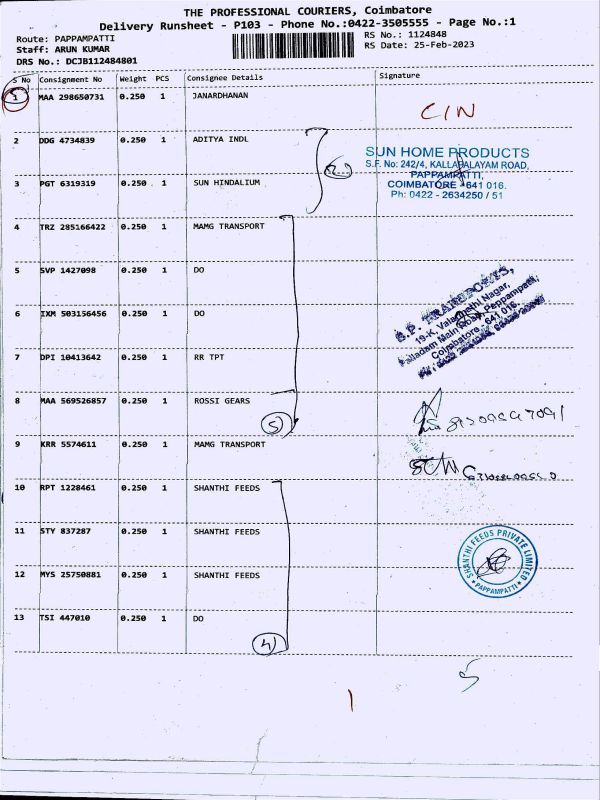 THE PROFESSIONAL COURIERS, Coimbatore
Delivery Runsheet - P103 - Phone No.:0422-3505555 - Page No.:1
Route: PAPPAMPATTI RS No.: 1124848
Staff: ARUN KUMAR RS Date: 25-Feb-2023
DRS No.: DCJB112484801
S No Consignment No Weight PCS Consignee Details Signature
1 MAA 298650731 0.250 1 JANARDHANAN
C/N
2 DDG 4734839 0.250 1 ADITYA INDL
SUN HOME PRODUCTS
S.F. No: 242/4, KALLAPALAYAM ROAD,
PAPPAMPATTI,
3 PGT 6319319 0.250 1 SUN HINDALIUM COIMBATORE - 641 016.
Ph: 0422 - 2634250 / 51
4 TRZ 285166422 0.250 1 MAMG TRANSPORT
5 SVP 1427098 0.250 1 DO
S.P. TRANSPORTS,
19-K, Valaguthi Nagar,
Palladam Main Road, Pappampatti,
Coimbatore - 641 016.
6 IXM 503156456 0.250 1 DO
7 DPI 10413642 0.250 1 RR TPT
8 MAA 569526857 0.250 1 ROSSI GEARS
5
9 KRR 5574611 0.250 1 MAMG TRANSPORT
10 RPT 1228461 0.250 1 SHANTHI FEEDS
11 STY 837287 0.250 1 SHANTHI FEEDS
SHANTHI FEEDS PRIVATE LIMITED
* PAPPAMPATTI *
12 MYS 25750881 0.250 1 SHANTHI FEEDS
13 TSI 447010 0.250 1 DO
4
5
1